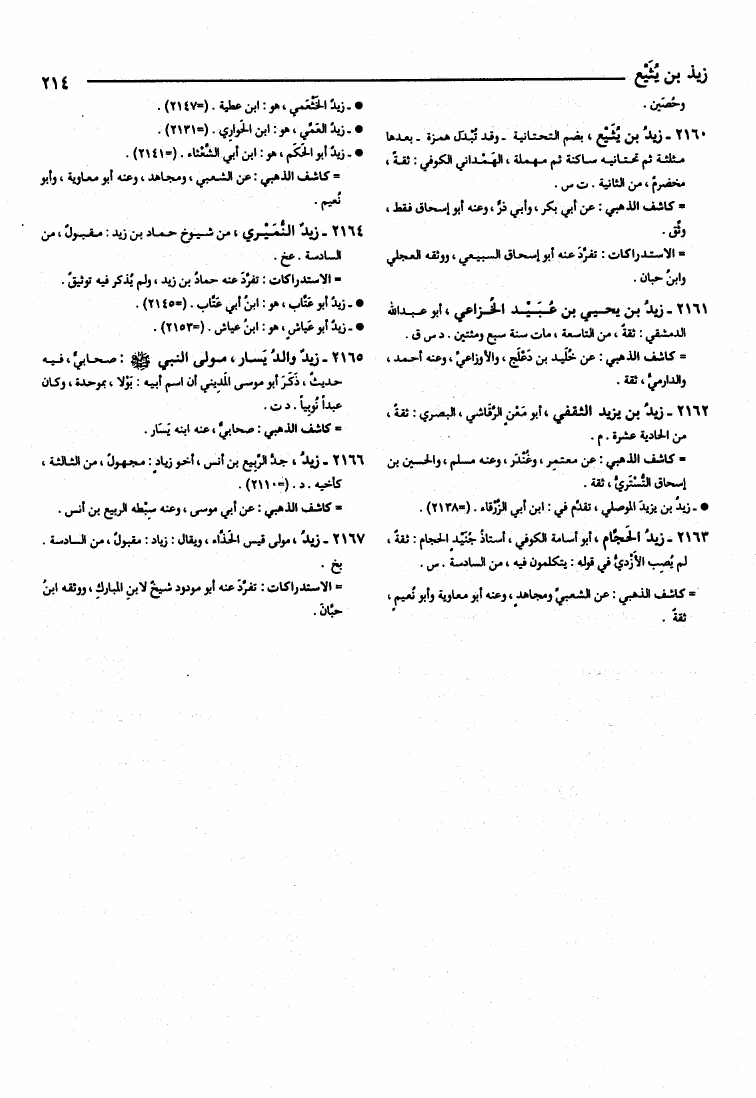 زيد بن يُثَيْع
٢١٤
وحُصَين .
٢١٦٠ ـ زيدُ بن يُثَيْع ، بضم التحتانية ـ وقد تُبْدَل همزة ـ بعدها
مثلثة ثم تحتانيه ساكنة ثم مهملة ، الهَمْداني الكوفي : ثقةٌ ،
مخضرمٌ ، من الثانية . ت س .
= كاشف الذهبي : عن أبي بكر ، وأبي ذرٍّ ، وعنه أبو إسحاق فقط ،
وثِّق .
= الاستدراكات : تفرَّد عنه أبو إسحاق السبيعي ، ووثقه العجلي
وابنُ حبان .
٢١٦١ ـ زيدُ بن يحيى بن عُبَيْـد الخُـزاعي ، أبو عبـدالله
الدمشقي : ثقةٌ ، من التاسعة ، مات سنة سبع ومئتين . د س ق .
= كاشف الذهبي : عن خُلَيد بن دَعْلَج ، والأوزاعيِّ ، وعنه أحمد ،
والدارميُّ ، ثقة .
٢١٦٢ ـ زيدُ بن يزيد الثقفي ، أبو مَعْنٍ الرَّقاشي ، البصري : ثقةٌ ،
من الحادية عشرة . م .
= كاشف الذهبي : عن معتمرٍ ، وغُنْدَر ، وعنه مسلم ، والحسين بن
إسحاق التُّسْتَريُّ ، ثقة .
● ـ زيدُ بن يزيدَ الموصلي ، تقدَّم في : ابن أبي الزَّرْقاء . (=٢١٣٨) .
٢١٦٣ ـ زيدُ الحَجَّام ، أبو أسامة الكوفي ، أستاذُ جُنَيْدٍ الحجام : ثقةٌ ،
لم يُصِب الأزْديُّ في قوله : يتكلمون فيه ، من السادسة . س .
= كاشف الذهبي : عن الشعبيِّ ومجاهدٍ ، وعنه أبو معاوية وأبو نُعيمٍ ،
ثقةٌ .
● ـ زيدٌ الخَثْعَمي ، هو : ابن عطية . (=٢١٤٧) .
● ـ زيدٌ العَمِّي ، هو : ابن الحَواري . (=٢١٣١) .
● ـ زيدٌ أبو الحَكَم ، هو : ابن أبي الشَّعْثاء . (=٢١٤١) .
= كاشف الذهبي : عن الشعبي ، ومجاهد ، وعنه أبو معاوية ، وأبو
نُعيم .
٢١٦٤ ـ زيدٌ النُّمَيْـري ، من شيـوخ حمـاد بن زيد : مقبـولٌ ، من
السادسة . عخ .
= الاستدراكات : تفرَّدَ عنه حمادُ بن زيد ، ولم يُذكر فيه توثيقٌ .
● ـ زيدٌ أبو عَتَّاب ، هو : ابنُ أبي عَتَّاب . (=٢١٤٥) .
● ـ زيدٌ أبو عَيَّاشٍ ، هو : ابنُ عياش . (=٢١٥٣) .
٢١٦٥ ـ زيدٌ والدُ يَسَار ، مـولى النبي ﷺ : صحـابيٌّ ، فيـه
حديثٌ ، ذَكَرَ أبو موسى المَديني أن اسم أبيه : بَوْلا ، بموحدة ، وكان
عبداً نُوبياً . د ت .
= كاشف الذهبي : صحابيٌّ ، عنه ابنه يَسَار .
٢١٦٦ ـ زيدٌ ، جدُّ الرَّبيع بن أنس ، أخو زيادٍ : مجهولٌ ، من الثالثة ،
كأخيه . د . (=٢١١٠) .
= كاشف الذهبي : عن أبي موسى ، وعنه سِبْطه الربيع بن أنس .
٢١٦٧ ـ زيدٌ ، مولى قيس الحَذَّاء ، ويقال : زياد : مقبولٌ ، من السادسة .
بخ .
= الاستدراكات : تفرَّدَ عنه أبو مودود شيخٌ لابنِ المباركِ ، ووثقه ابنُ
حبَّانَ .